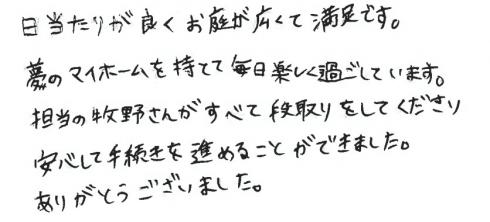 日当たりが良くお庭が広くて満足です。
夢のマイホームを持てて毎日楽しく過ごしています。
担当の牧野さんがすべて段取りをしてくださり
安心して手続きを進めることができました。
ありがとうございました。